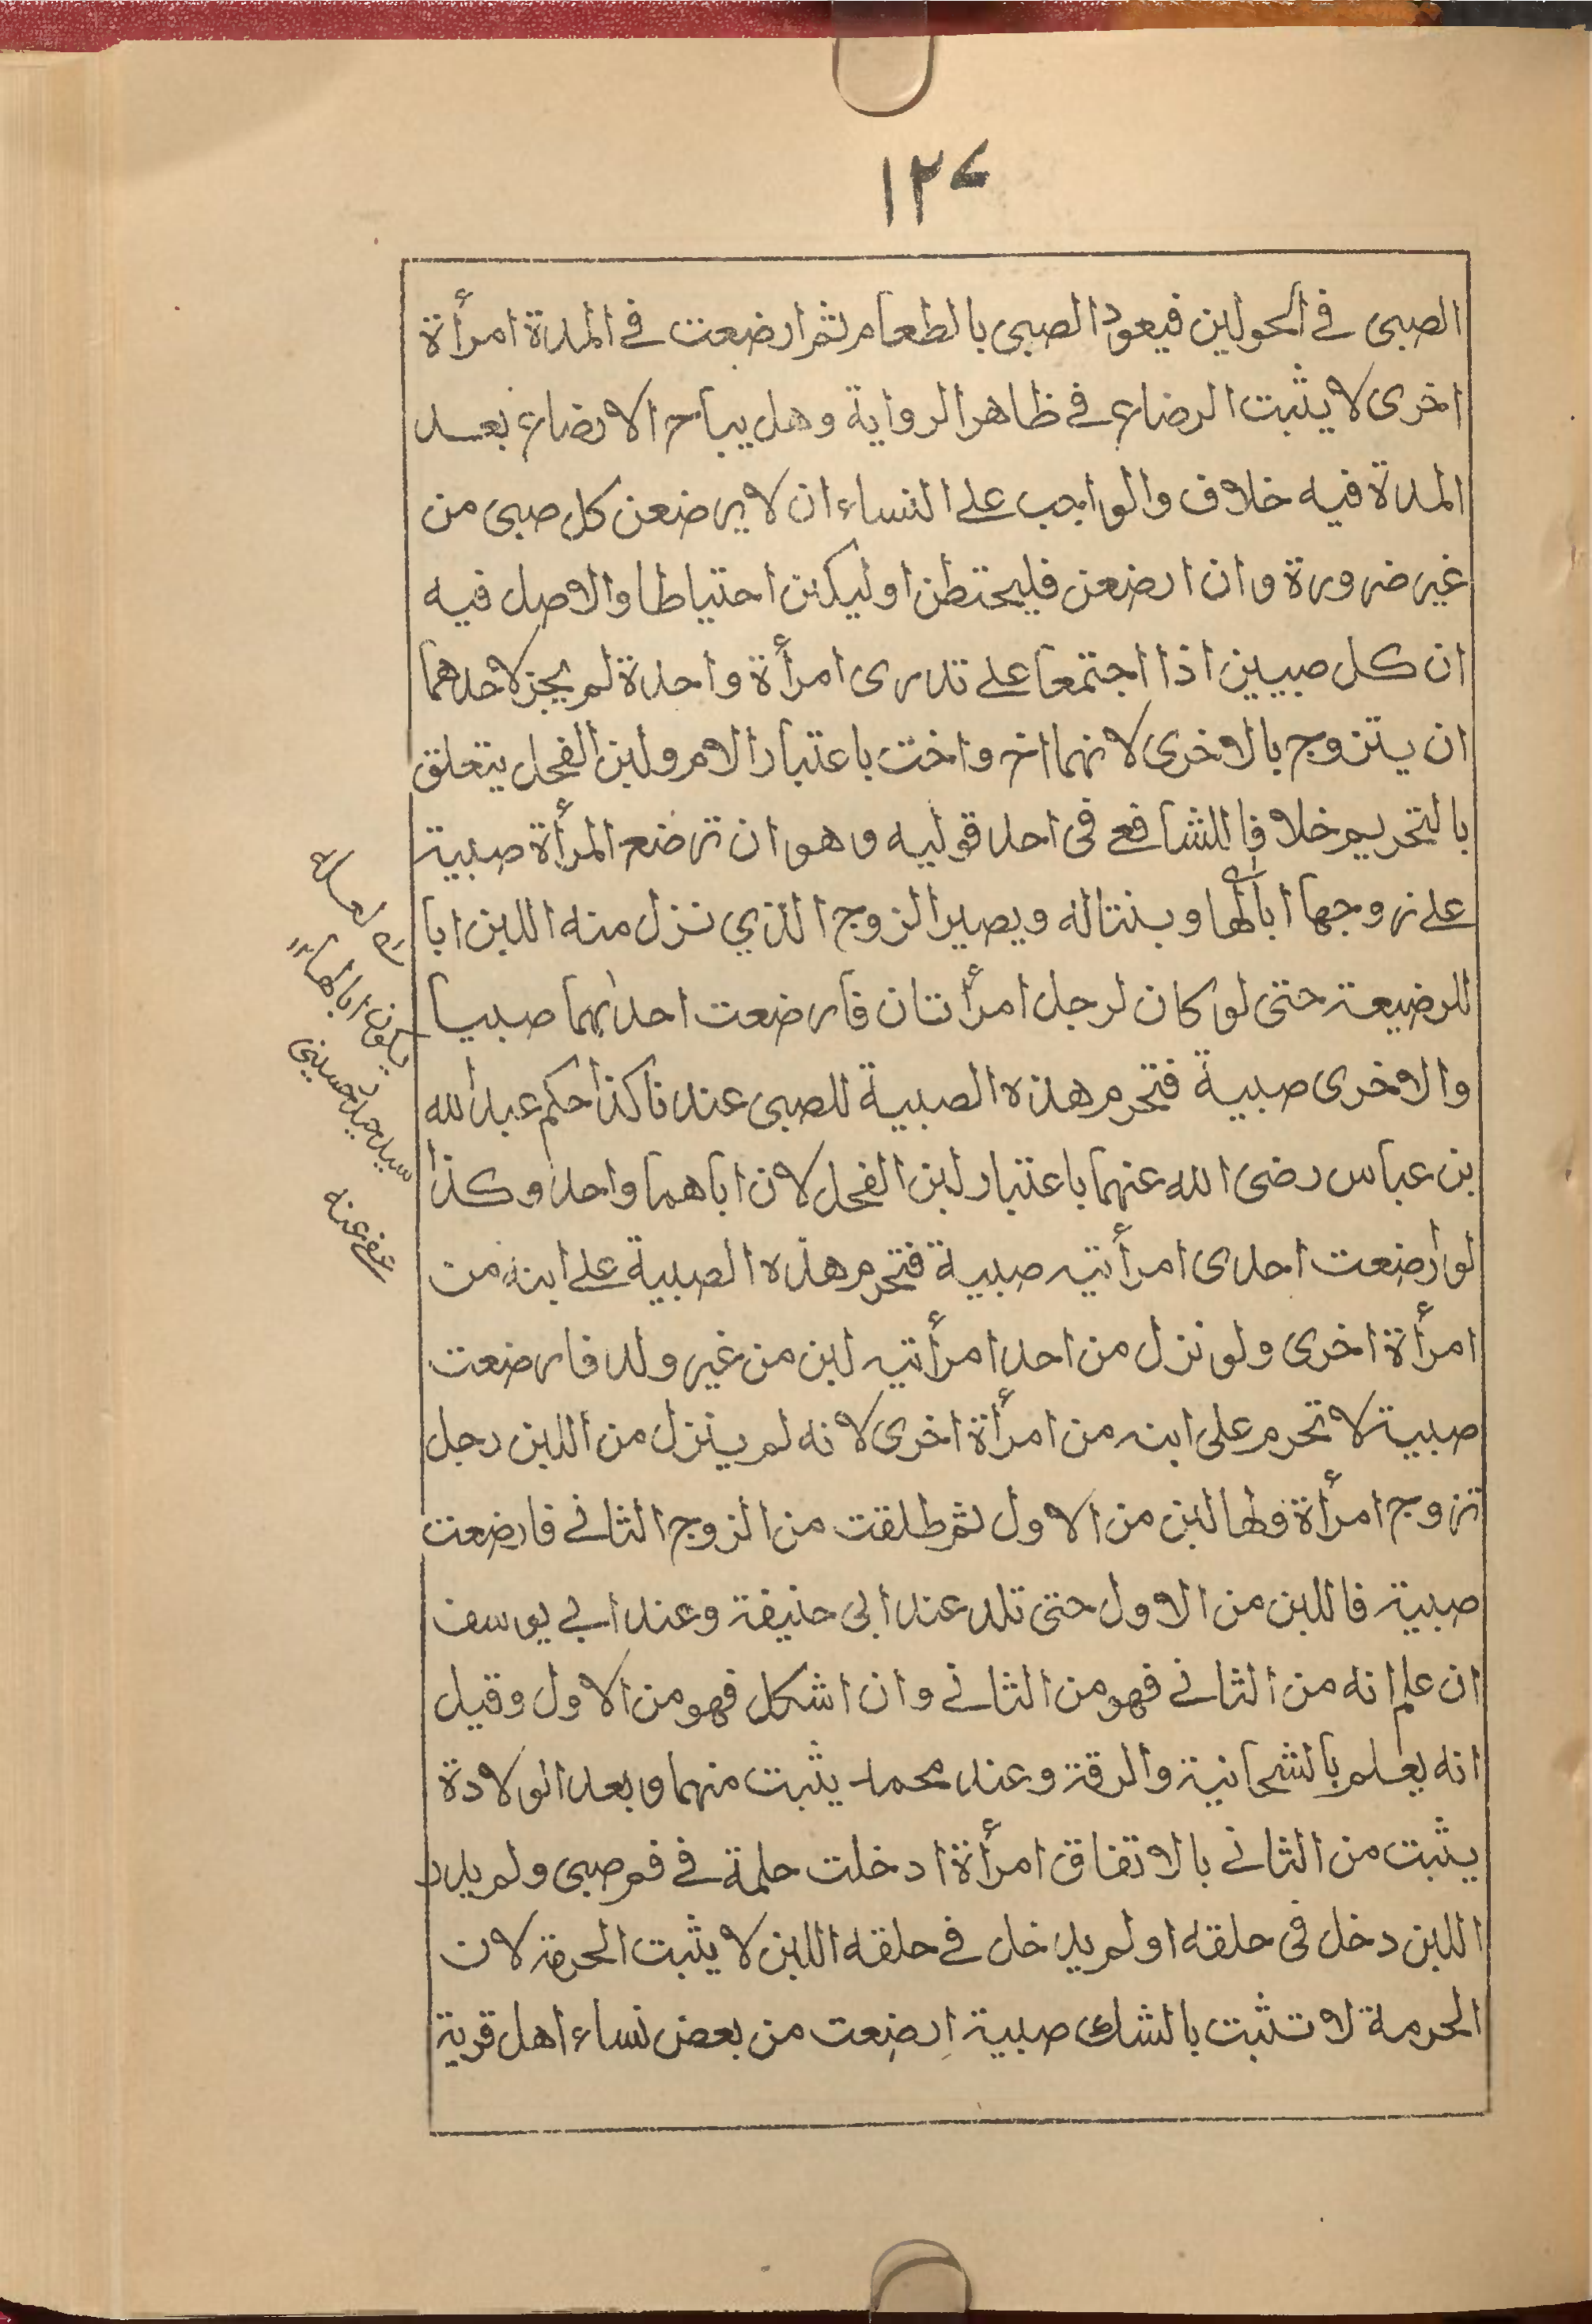 ١٢٧
الصبى فى الحولين فيعود الصبى بالطعام ثم ارضعت فى المدة امرأة
اخرى لا يثبت الرضاع فى ظاهر الرواية وهل يباح الارضاع بعد
المدة فيه خلاف والواجب على النساء ان لا يرضعن كل صبى من
غير ضرورة وان ارضعن فليحتطن او ليكن احتياطا والاصل فيه
ان كل صبيين اذا اجتمعا على تدرى امرأة واحدة لم يجز لاحدهما
ان يتزوج بالاخرى لانهما اخ واخت باعتبار الام ولبن الفحل يتعلق
بالتحريم خلافا للشافعى فى احد قوليه وهو ان ترضع المرأة صبية
على زوجها ابا لها وبنتا له ويصير الزوج الذي نزل منه اللبن ابا
للرضيعة حتى لو كان لرجل امرأتان فارضعت احدٰهما صبيا
والاخرى صبية فتحرم هذه الصبية للصبى عندنا كذا حكم عبد الله
بن عباس رضى الله عنهما باعتبار لبن الفحل لان اباهما واحد وكذا
لو ارضعت احدى امرأتيه صبية فتحرم هذه الصبية على ابنه من
امرأة اخرى ولو نزل من احد امرأتيه لبن من غير ولد فارضعت
صبية لا تحرم على ابنه من امرأة اخرى لانه لم ينزل من اللبن رجل
تزوج امرأة ولها لبن من الاول ثم طلقت من الزوج الثانى فارضعت
صبية فاللبن من الاول حتى تلد عند ابى حنيفة وعند ابى يوسف
ان علم انه من الثانى فهو من الثانى وان اشكل فهو من الاول وقيل
انه يعلم بالشحانية والرقة وعند محمد يثبت منهما وبعد الولادة
يثبت من الثانى بالاتفاق امرأة ادخلت حلمة فى فم صبى ولم يدر
اللبن دخل فى حلقه او لم يدخل فى حلقه اللبن لا يثبت الحرمة لان
الحرمة لا تثبت بالشك صبية ارضعت من بعض نساء اهل قرية
يكون ابا لها
سيد حسينى
عفى عنه